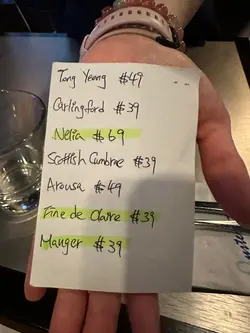 Tong Yeong $49
Carlingford $39
Nelia $69
Scottish Cumbrae $39
Arousa $49
Fine de Claire $39
Manger $39